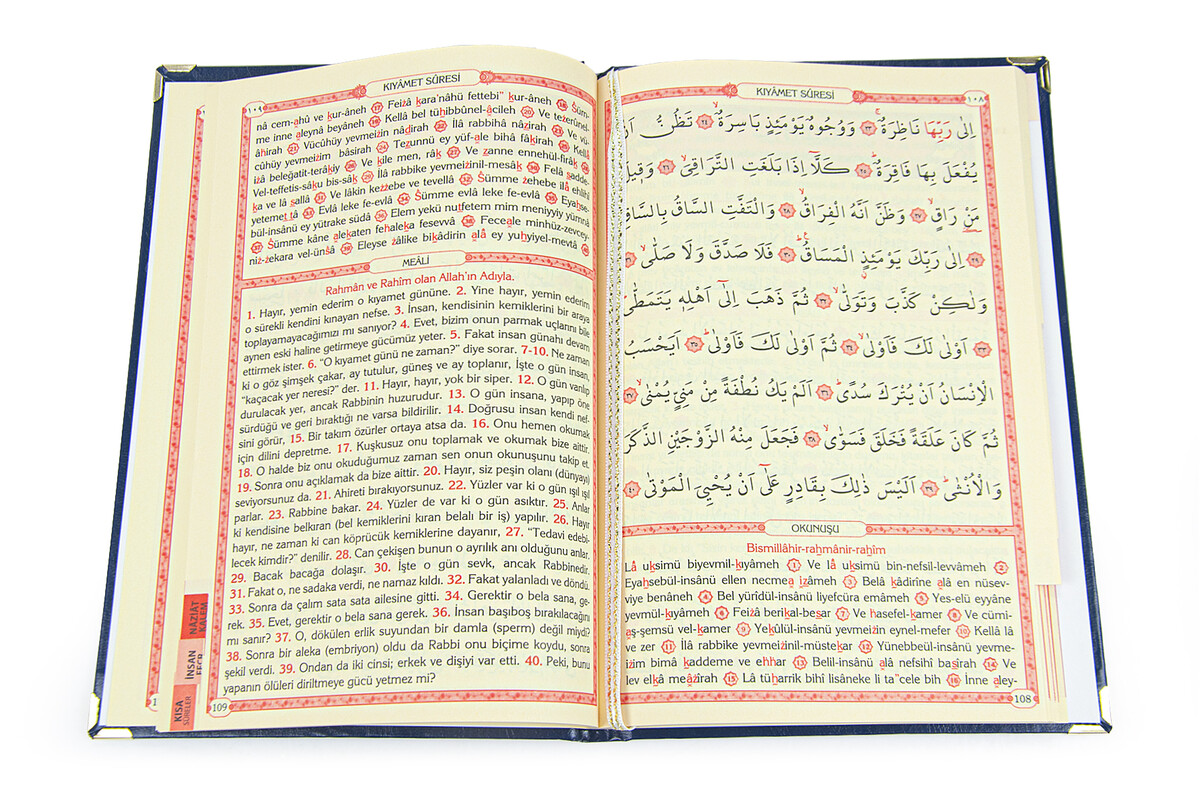 KIYÂMET SÛRESİ
١٠٨
اِلٰى رَبِّهَا نَاظِرَةٌۚ ﴿٢٣﴾ وَوُجُوهٌ يَوْمَئِذٍ بَاسِرَةٌۙ ﴿٢٤﴾ تَظُنُّ اَنْ
يُفْعَلَ بِهَا فَاقِرَةٌۜ ﴿٢٥﴾ كَلَّٓا اِذَا بَلَغَتِ التَّرَاقِيَۙ ﴿٢٦﴾ وَقٖيلَ
مَنْ رَاقٍۙ ﴿٢٧﴾ وَظَنَّ اَنَّهُ الْفِرَاقُۙ ﴿٢٨﴾ وَالْتَفَّتِ السَّاقُ بِالسَّاقِۙ
﴿٢٩﴾ اِلٰى رَبِّكَ يَوْمَئِذٍۨ الْمَسَاقُۜ ﴿٣٠﴾ فَلَا صَدَّقَ وَلَا صَلّٰىۙ ﴿٣١﴾
وَلٰكِنْ كَذَّبَ وَتَوَلّٰىۙ ﴿٣٢﴾ ثُمَّ ذَهَبَ اِلٰٓى اَهْلِهٖ يَتَمَطّٰىۜ
﴿٣٣﴾ اَوْلٰى لَكَ فَاَوْلٰىۙ ﴿٣٤﴾ ثُمَّ اَوْلٰى لَكَ فَاَوْلٰىۜ ﴿٣٥﴾ اَيَحْسَبُ
الْاِنْسَانُ اَنْ يُتْرَكَ سُدًىۜ ﴿٣٦﴾ اَلَمْ يَكُ نُطْفَةً مِنْ مَنِيٍّ يُمْنٰىۙ ﴿٣٧﴾
ثُمَّ كَانَ عَلَقَةً فَخَلَقَ فَسَوّٰىۙ ﴿٣٨﴾ فَجَعَلَ مِنْهُ الزَّوْجَيْنِ الذَّكَرَ
وَالْاُنْثٰىۜ ﴿٣٩﴾ اَلَيْسَ ذٰلِكَ بِقَادِرٍ عَلٰٓى اَنْ يُحْيِيَ الْمَوْتٰى ﴿٤٠﴾
OKUNUŞU
Bismillâhir-rahmânir-rahîm
Lâ uksimü biyevmil-kıyâmeh 1 Ve lâ uksimü bin-nefsil-levvâmeh 2
Eyahsebül-insânü ellen necmea izâmeh 3 Belâ kâdirîne alâ en nüsev-
viye benâneh 4 Bel yürîdül-insânü liyefcüra emâmeh 5 Yes-elü eyyâne
yevmül-kıyâmeh 6 Feizâ berikal-besar 7 Ve hasefel-kamer 8 Ve cümi-
aş-şemsü vel-kamer 9 Yekûlül-insânü yevmeizin eynel-mefer 10 Kellâ lâ
ve zer 11 İlâ rabbike yevmeizinil-müstekar 12 Yünebbeül-insânü yevme-
izim bimâ kaddeme ve ehhar 13 Belil-insânü alâ nefsihî basîrah 14 Ve
lev elkâ meâzîrah 15 Lâ tüharrik bihî lisâneke li ta"cele bih 16 İnne aley-
108
KIYÂMET SÛRESİ
١٠٩
nâ cem-ahû ve kur-âneh 17 Feizâ kara'nâhü fettebi" kur-âneh 18 Süm-
me inne aleynâ beyâneh 19 Kellâ bel tühibbûnel-âcileh 20 Ve tezerûnel-
âhirah 21 Vücûhüy yevmeizin nâdirah 22 İlâ rabbihâ nâzirah 23 Ve vü-
cûhüy yevmeizim bâsirah 24 Tezunnü ey yüf-ale bihâ fâkirah 25 Kellâ
izâ beleğatit-terâkıy 26 Ve kîle men, râk 27 Ve zanne ennehül-firâk 28
Vel-teffetis-sâku bis-sâk 29 İlâ rabbike yevmeizinil-mesâk 30 Felâ sadde-
ka ve lâ sallâ 31 Ve lâkin kezzebe ve tevellâ 32 Sümme zehebe ilâ ehlihî
yetemet tâ 33 Evlâ leke fe-evlâ 34 Sümme evlâ leke fe-evlâ 35 Eyahse-
bül-insânü ey yütrake südâ 36 Elem yekü nutfetem mim meniyyiy yümnâ
37 Sümme kâne alekaten fehaleka fesevvâ 38 Feceale minhüz-zevcey-
niz-zekara vel-ünsâ 39 Eleyse zâlike bikâdirin alâ ey yuhyiyel-mevtâ 40
MEÂLİ
Rahmân ve Rahîm olan Allah'ın Adıyla.
1. Hayır, yemin ederim o kıyamet gününe. 2. Yine hayır, yemin ederim
o sürekli kendini kınayan nefse. 3. İnsan, kendisinin kemiklerini bir araya
toplayamayacağımızı mı sanıyor? 4. Evet, bizim onun parmak uçlarını bile
aynen eski haline getirmeye gücümüz yeter. 5. Fakat insan günahı devam
ettirmek ister. 6. "O kıyamet günü ne zaman?" diye sorar. 7-10. Ne zaman
ki o göz şimşek çakar, ay tutulur, güneş ve ay toplanır, İşte o gün insan,
"kaçacak yer neresi?" der. 11. Hayır, hayır, yok bir siper. 12. O gün varılıp
durulacak yer, ancak Rabbinin huzurudur. 13. O gün insana, yapıp öne
sürdüğü ve geri bıraktığı ne varsa bildirilir. 14. Doğrusu insan kendi nef-
sini görür, 15. Bir takım özürler ortaya atsa da. 16. Onu hemen okumak
için dilini depretme. 17. Kuşkusuz onu toplamak ve okumak bize aittir.
18. O halde biz onu okuduğumuz zaman sen onun okunuşunu takip et.
19. Sonra onu açıklamak da bize aittir. 20. Hayır, siz peşin olanı (dünyayı)
seviyorsunuz da. 21. Ahireti bırakıyorsunuz. 22. Yüzler var ki o gün ışıl ışıl
parlar. 23. Rabbine bakar. 24. Yüzler de var ki o gün asıktır. 25. Anlar
ki kendisine belkıran (bel kemiklerini kıran belalı bir iş) yapılır. 26. Hayır
hayır, ne zaman ki can köprücük kemiklerine dayanır, 27. "Tedavi edebi-
lecek kimdir?" denilir. 28. Can çekişen bunun o ayrılık anı olduğunu anlar.
29. Bacak bacağa dolaşır. 30. İşte o gün sevk, ancak Rabbinedir.
31. Fakat o, ne sadaka verdi, ne namaz kıldı. 32. Fakat yalanladı ve döndü.
33. Sonra da çalım sata sata ailesine gitti. 34. Gerektir o bela sana, ge-
rek. 35. Evet, gerektir o bela sana gerek. 36. İnsan başıboş bırakılacağını
mı sanır? 37. O, dökülen erlik suyundan bir damla (sperm) değil miydi?
38. Sonra bir aleka (embriyo) oldu da Rabbi onu biçime koydu, sonra
şekil verdi. 39. Ondan da iki cinsi; erkek ve dişiyi var etti. 40. Peki, bunu
yapanın ölüleri diriltmeye gücü yetmez mi?
109
NÂZİÂT
KALEM
İNSAN
FECR
KISA
SÛRELER